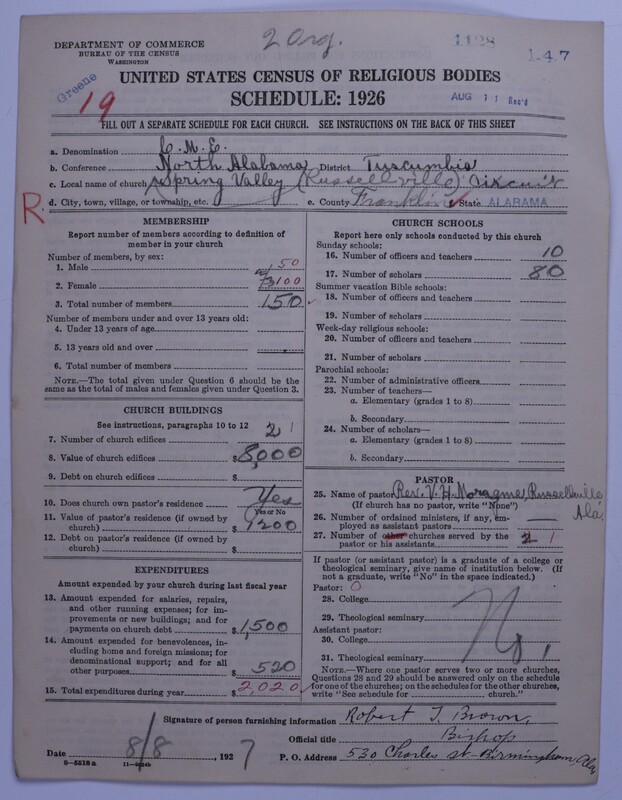 2 Org.
1128
147
DEPARTMENT OF COMMERCE
BUREAU OF THE CENSUS
WASHINGTON
Greene
19
UNITED STATES CENSUS OF RELIGIOUS BODIES
SCHEDULE: 1926
AUG 11 Rec'd
FILL OUT A SEPARATE SCHEDULE FOR EACH CHURCH. SEE INSTRUCTIONS ON THE BACK OF THIS SHEET
a. Denomination C. M. E.
b. Conference North Alabama District Tuscumbia
c. Local name of church Spring Valley (Russellville) Circuit
R
d. City, town, village, or township, etc. e. County Franklin State ALABAMA
MEMBERSHIP
Report number of members according to definition of member in your church
Number of members, by sex:
1. Male 50
2. Female 100
3. Total number of members 150
Number of members under and over 13 years old:
4. Under 13 years of age
5. 13 years old and over
6. Total number of members
NOTE.—The total given under Question 6 should be the same as the total of males and females given under Question 3.
CHURCH BUILDINGS
See instructions, paragraphs 10 to 12
7. Number of church edifices 2 1
8. Value of church edifices $8,000
9. Debt on church edifices $
10. Does church own pastor's residence Yes
Yes or No
11. Value of pastor's residence (if owned by church) $1200
12. Debt on pastor's residence (if owned by church) $
EXPENDITURES
Amount expended by your church during last fiscal year
13. Amount expended for salaries, repairs, and other running expenses; for improvements or new buildings; and for payments on church debt $1,500
14. Amount expended for benevolences, including home and foreign missions; for denominational support; and for all other purposes $520
15. Total expenditures during year $2020
CHURCH SCHOOLS
Report here only schools conducted by this church
Sunday schools:
16. Number of officers and teachers 10
17. Number of scholars 80
Summer vacation Bible schools:
18. Number of officers and teachers
19. Number of scholars
Week-day religious schools:
20. Number of officers and teachers
21. Number of scholars
Parochial schools:
22. Number of administrative officers
23. Number of teachers—
a. Elementary (grades 1 to 8)
b. Secondary
24. Number of scholars—
a. Elementary (grades 1 to 8)
b. Secondary
PASTOR
25. Name of pastor Rev. V. H. Moragne, Russellville Ala.
(If church has no pastor, write "None")
26. Number of ordained ministers, if any, employed as assistant pastors
27. Number of other churches served by the pastor or his assistants 2 1
If pastor (or assistant pastor) is a graduate of a college or theological seminary, give name of institution below. (If not a graduate, write "No" in the space indicated.)
Pastor: 0
28. College
29. Theological seminary
Assistant pastor:
30. College
31. Theological seminary
NOTE.—Where one pastor serves two or more churches, Questions 28 and 29 should be answered only on the schedule for one of the churches; on the schedules for the other churches, write "See schedule for church."
Signature of person furnishing information Robert T. Brown,
Official title Bishop
Date 8/8 1927 P. O. Address 530 Charles St-Birmingham, Ala
8-5518 a